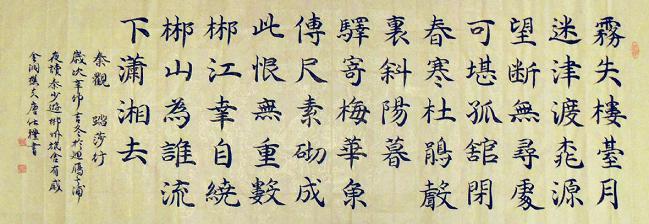 霧失樓臺月
迷津渡桃源
望斷無尋處
可堪孤舘閉
春寒杜鵑聲
裏斜陽暮
驛寄梅華魚
傳尺素砌成
此恨無重數
郴江幸自繞
郴山為誰流
下瀟湘去
秦觀 踏莎行
歲次辛卯吉冬於迴鴈之浦
夜讀秦少游郴州旅舍有感
唐仕禮書